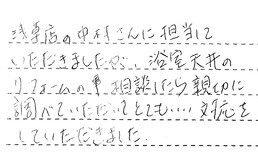 浅草店の中村さんに担当して
いただきましたが、浴室天井の
リフォームの事相談したら親切に
調べていただいてとても…対応を
していただきました。